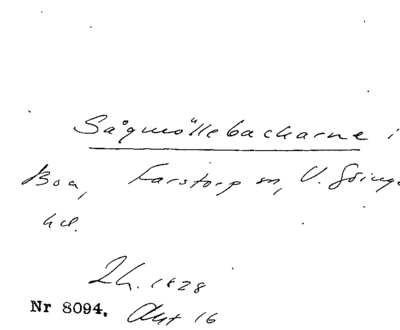 Sågmöllebackarne i
Boa, Farstorp sn, V. Göinge
hd.
Lh. 1828
Nr 8094. Akt 16